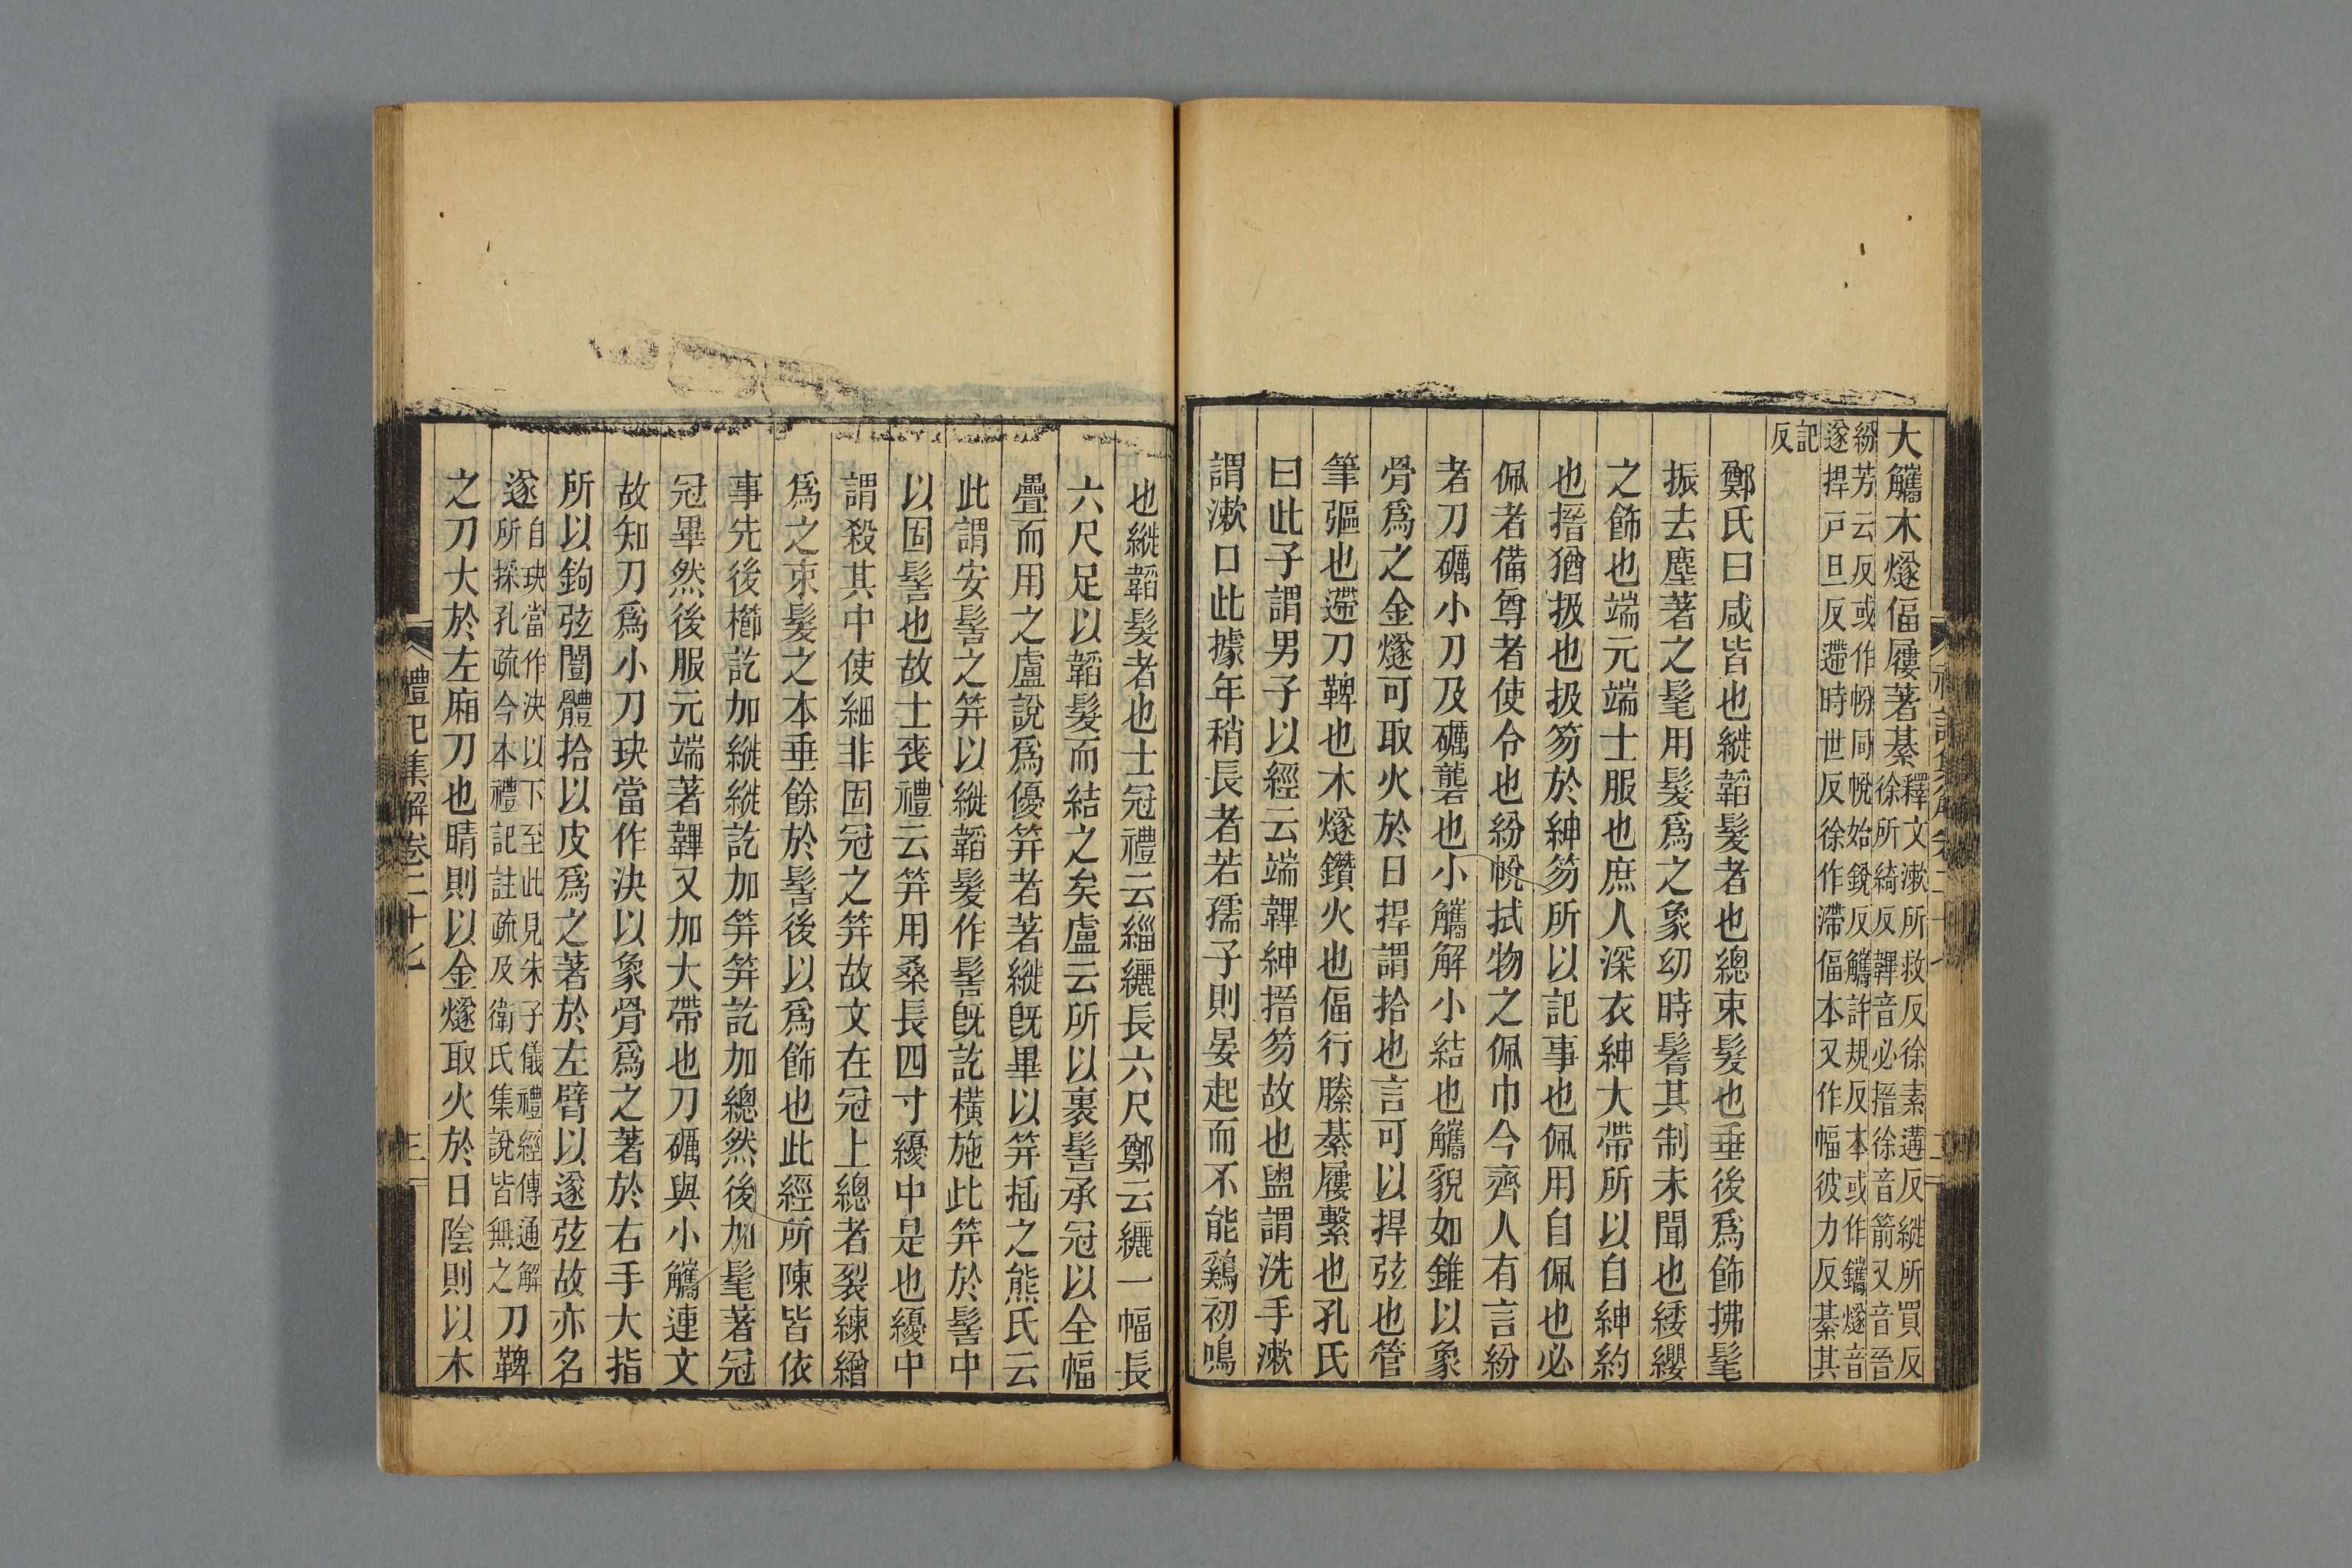 大觿木燧偪屨著綦釋文漱所救反徐素遘反縰所買反
徐所綺反鞸音必搢徐音箭又音晉
紛芳云反或作帉同帨始銳反觿許規反本或作鑴燧音
遂捍戸旦反遰時世反徐作滯偪本又作幅彼力反綦其
記
反
鄭氏曰咸皆也縰韜髮者也總束髮也垂後爲飾拂髦
振去塵著之髦用髮爲之象幼時鬌其制未聞也緌纓
之飾也端元端士服也庶人深衣紳大帶所以自紳約
也搢猶扱也扱笏於紳笏所以記事也佩用自佩也必
佩者備尊者使令也紛帨拭物之佩巾今齊人有言紛
者刀礪小刀及礪礱也小觿解小結也觿貌如錐以象
骨爲之金燧可取火於日捍謂拾也言可以捍弦也管
筆彄也遰刀鞞也木燧鑽火也偪行縢綦屨繫也孔氏
曰此子謂男子以經云端鞸紳搢笏故也盥謂洗手漱
謂漱口此據年稍長者若孺子則晏起而不能鷄初鳴
也縰韜髮者也士冠禮云緇纚長六尺鄭云纚一幅長
六尺足以韜髮而結之矣盧云所以裹髻承冠以全幅
疊而用之盧說爲優笄者著縰旣畢以笄插之熊氏云
此謂安髻之笄以縰韜髮作髻旣訖橫施此笄於髻中
以固髻也故士喪禮云笄用桑長四寸纋中是也纋中
謂殺其中使細非固冠之笄故文在冠上總者裂練繒
爲之束髮之本垂餘於髻後以爲飾也此經所陳皆依
事先後櫛訖加縰縰訖加笄笄訖加總然後加髦著冠
冠畢然後服元端著鞸又加大帶也刀礪與小觿連文
故知刀爲小刀玦當作決以象骨爲之著於右手大指
所以鉤弦闓體拾以皮爲之著於左臂以遂弦故亦名
遂自玦當作決以下至此見朱子儀禮經傳通解
所採孔疏今本禮記註疏及衛氏集說皆無之刀鞞
之刀大於左廂刀也晴則以金燧取火於日陰則以木
禮記集解卷二十七
三